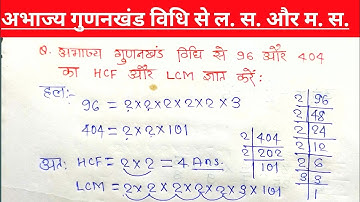 अभाज्य गुणनखंड विधि से ल. स. और म. स.
Q. अभाज्य गुणनखंड विधि से 96 और 404
का HCF और LCM ज्ञात करें:
हल:-
96 = 2×2×2×2×2×3
404 = 2×2×101
अतः HCF = 2×2 = 4 Ans.
LCM = 2×2×2×2×2×3×101
2 | 404
2 | 202
101
2 | 96
2 | 48
2 | 24
2 | 12
2 | 6
3 | 3
1